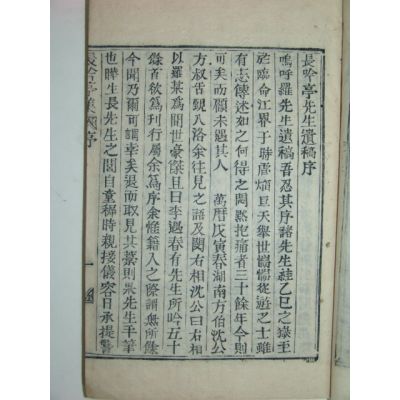 長吟亭先生遺稿序
嗚呼羅先生遺稿吾忍其序諸先生絓乙巳之獄至
於臨命江界于時虐焰亘天舉世惴惴從遊之士雖
有志傳述如之何得之閟黙抱痛者三十餘年今則
可矣而願未遇其人 萬曆戊寅春湖南方伯沈公
方叔 覲 洛余往見之語及閔右相沈公曰右相
以羅某爲間世豪傑且曰李遇春有先生所吟五十
餘首欲爲刊行屬余爲序余 籍入之餘謂無所餘
今聞乃爾可謂幸矣退而取見其藝則果先生手筆
也曄生長先生之閭自童穉時親接儀容日承提警
長吟亭集 序
一